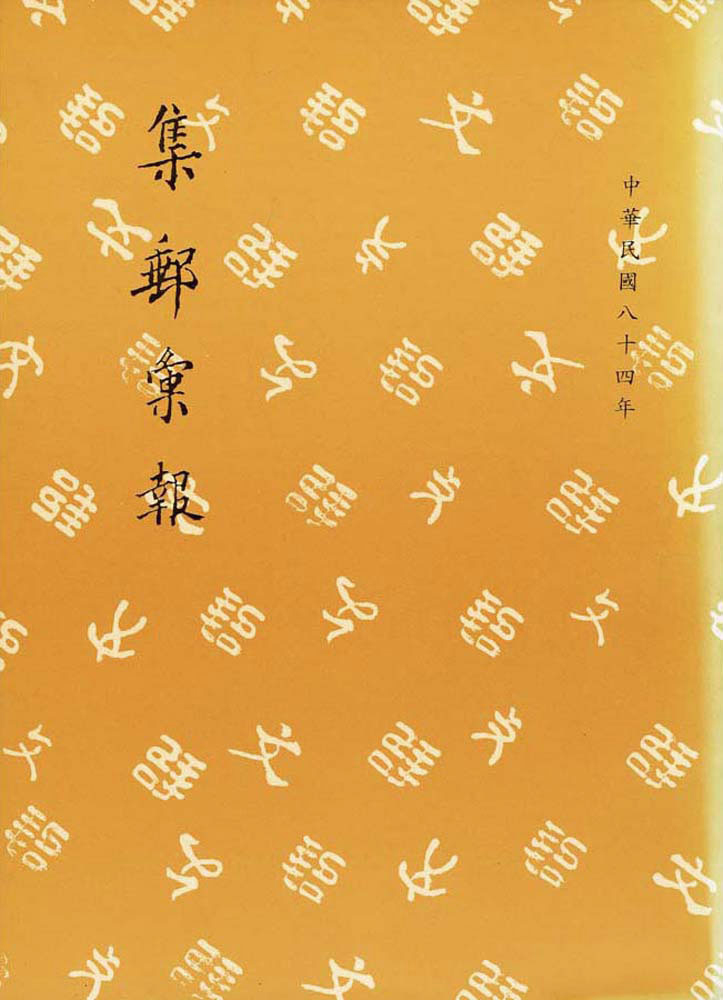 中華民國八十四年
集郵彙報